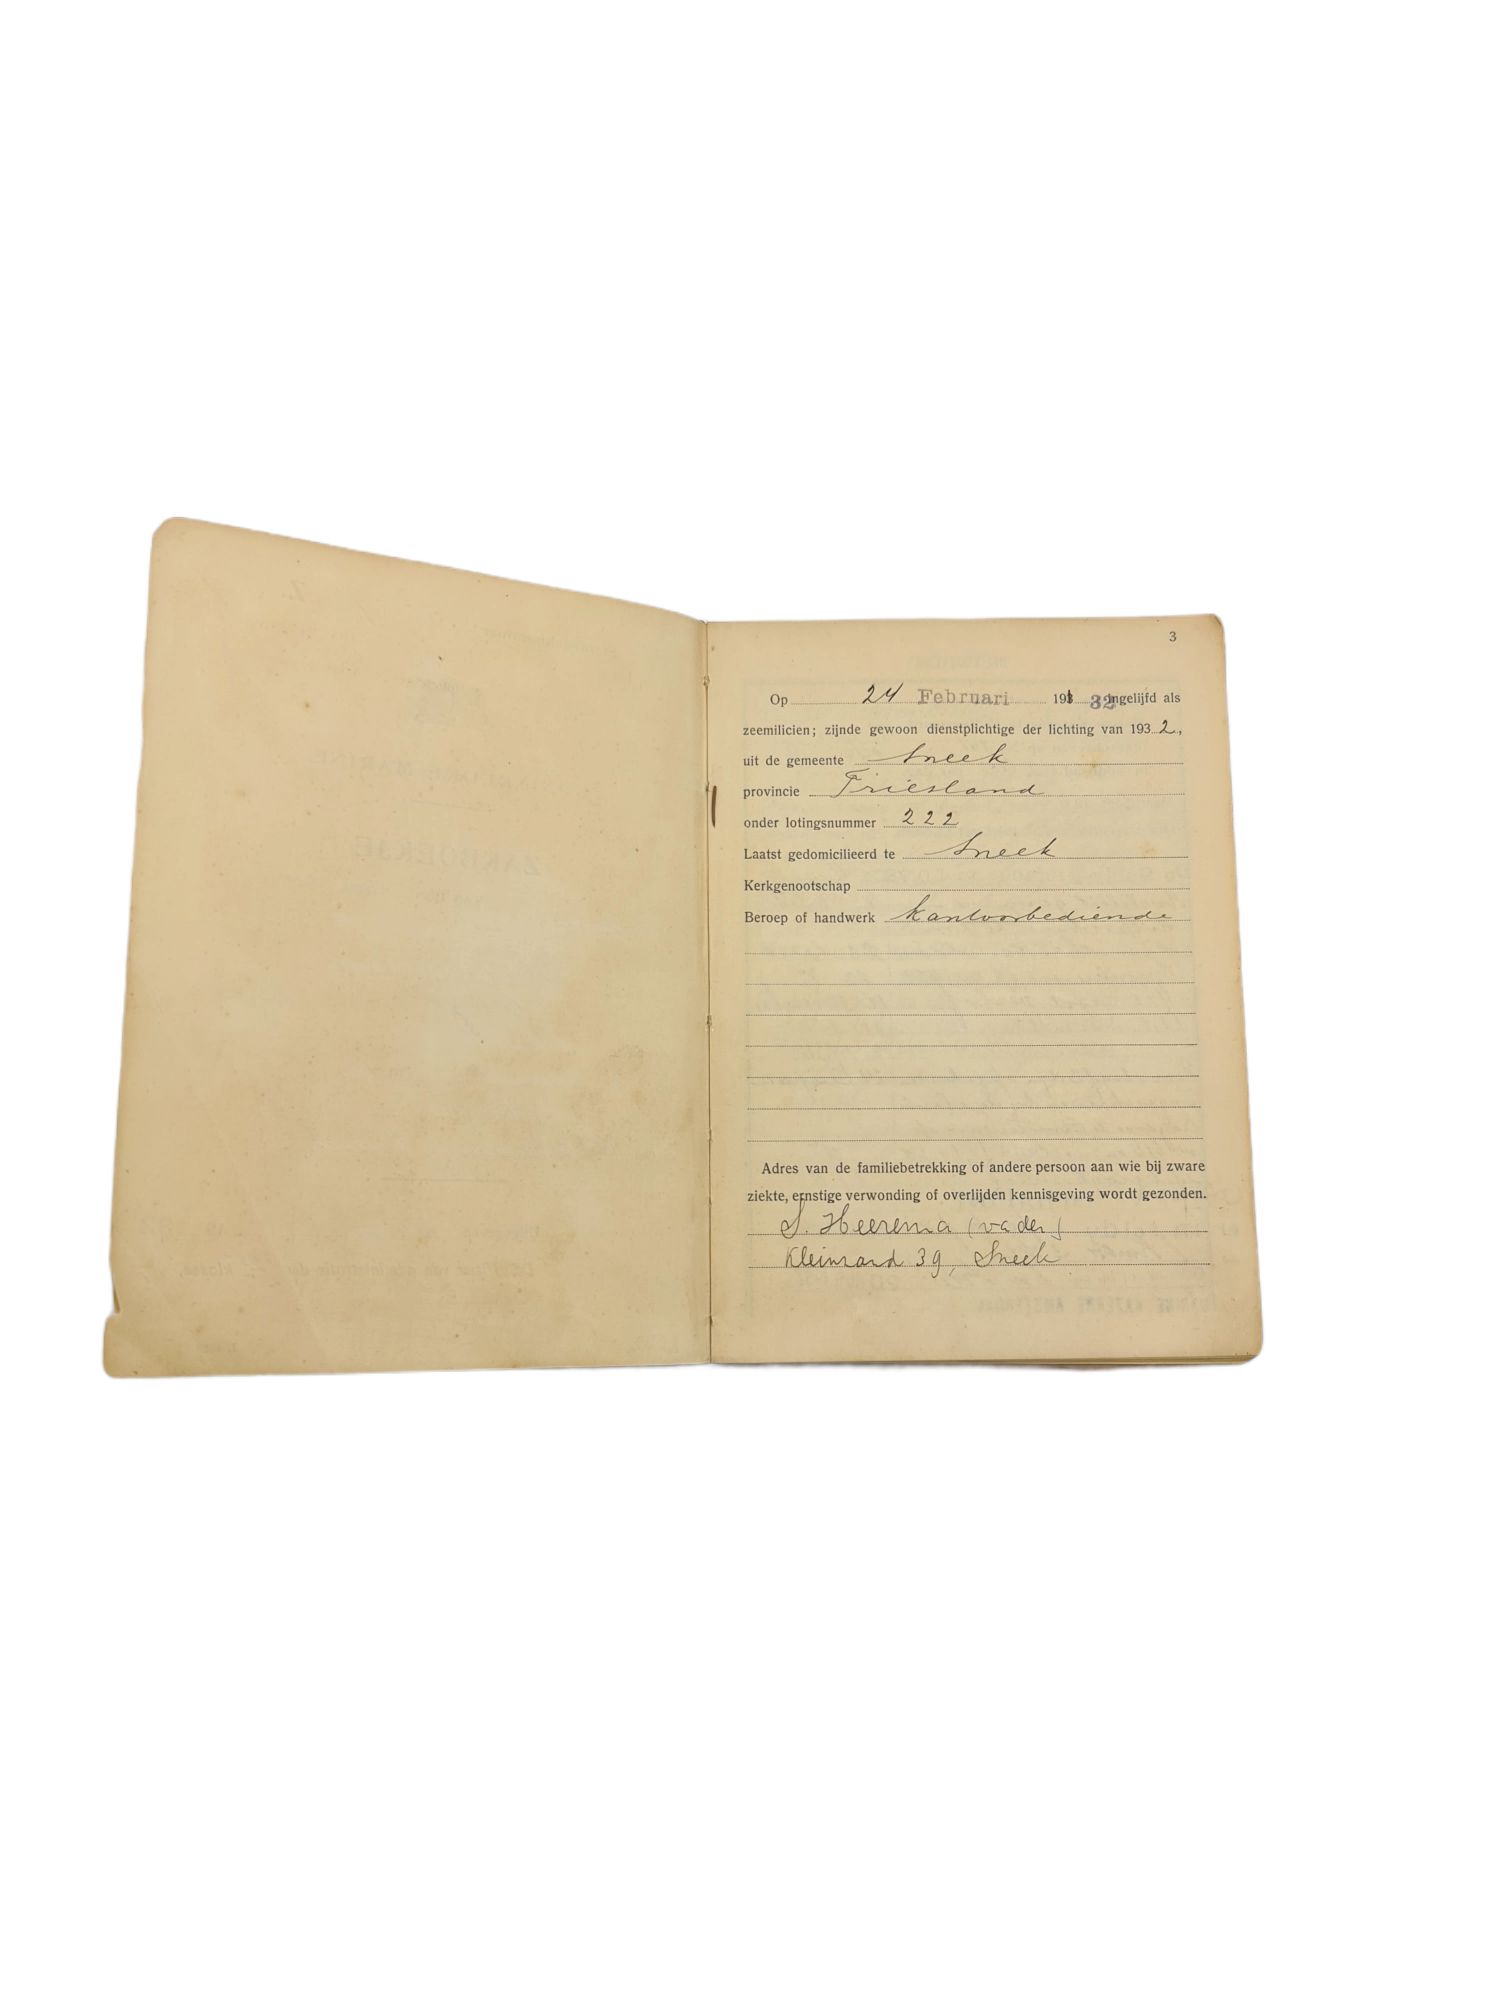 3
Op 24 Februari 193 32 ingelijfd als
zeemilicien; zijnde gewoon dienstplichtige der lichting van 1932,
uit de gemeente Sneek
provincie Friesland
onder lotingsnummer 222
Laatst gedomicilieerd te Sneek
Kerkgenootschap
Beroep of handwerk kantoorbediende
Adres van de familiebetrekking of andere persoon aan wie bij zware
ziekte, ernstige verwonding of overlijden kennisgeving wordt gezonden.
S. Heerema (vader)
Kleinzand 39, Sneek